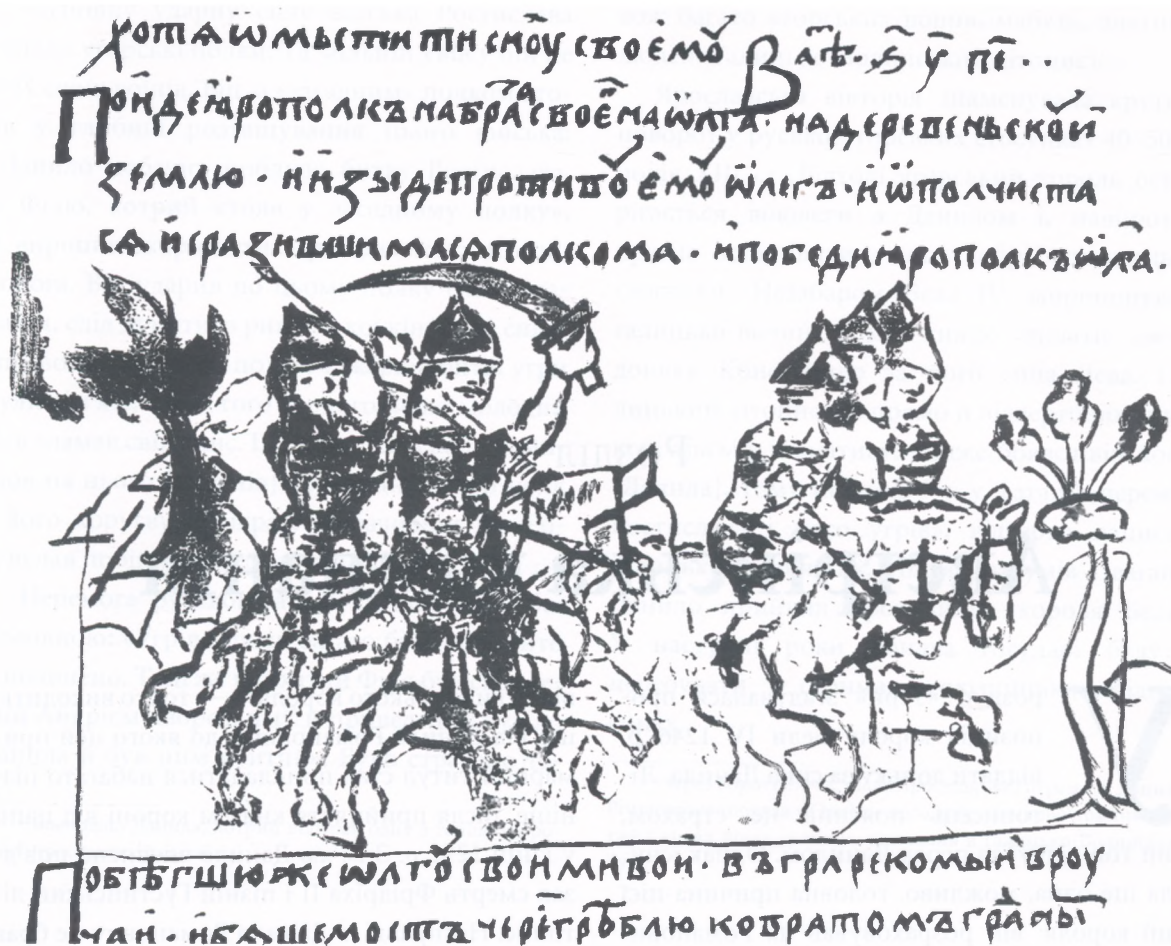 хотѧ ѡмьстити сн҃оу своемоу В лѣт҃ ѕ҃ у҃ пе҃ ·
Поиде ꙗрополкъ на брата своег҃ на ѡлга · на деревеньскоую
землю · и изыде противоу емоу ѡлегъ · и ѡполчиста
сѧ и сразившимасѧ полкома · и победи ꙗрополкъ ѡлга ·
Побѣгшю же ѡлгоу с вои · въ гра рекомыи вроу
чаи · и бѧше мостъ чере гроблю ко вратомъ